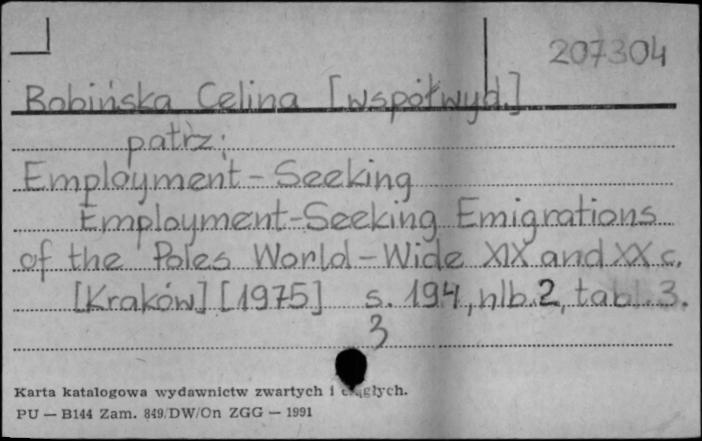 207304
Bobińska Celina [współwyd.]
patrz:
Employment-Seeking
Employment-Seeking Emigrations
of the Poles World-Wide XIX and XX c.
[Kraków] [1975] s. 194, nlb. 2, tabl. 3.
3
Karta katalogowa wydawnictw zwartych i ciągłych.
PU — B144 Zam. 849/DW/On ZGG — 1991